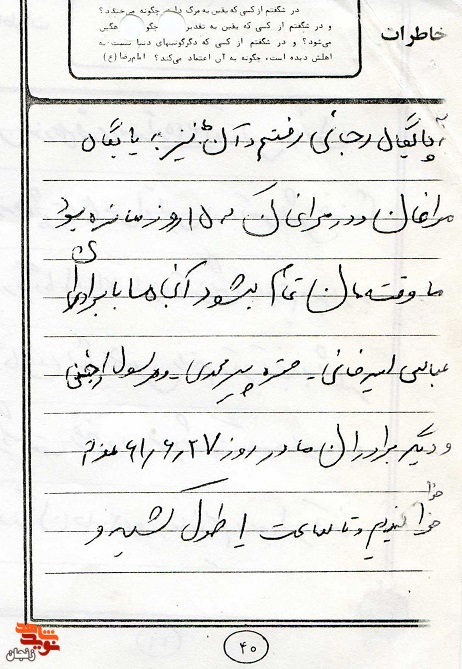 در شگفتم از کسی که یقین به مرگ دارد چگونه می‌خندد؟
و در شگفتم از کسی که یقین به تقدیر چگو غمگین
می‌شود؟ و در شگفتم از کسی که دگرگونیهای دنیا نسبت به
اهلش دیده است، چگونه به آن اعتماد می‌کند؟ امام رضا (ع)
خاطرات
به پایگاه رجائی رفتم و آن نیز به پایگاه
مراغان و در مراغان که ۱۵ روز مانده بود
ما وقت مان تمام بشود آنجا ما با برادرای
عباس امیرخانی - حمزه پیرمحمدی - و
و دیگر برادران ما در روز ۶۱٫۶٫۲۷ عذا
عذا کندیم و تا ساعت ۱ طول کشید و
۴۰
نوید شاهد
زنجان